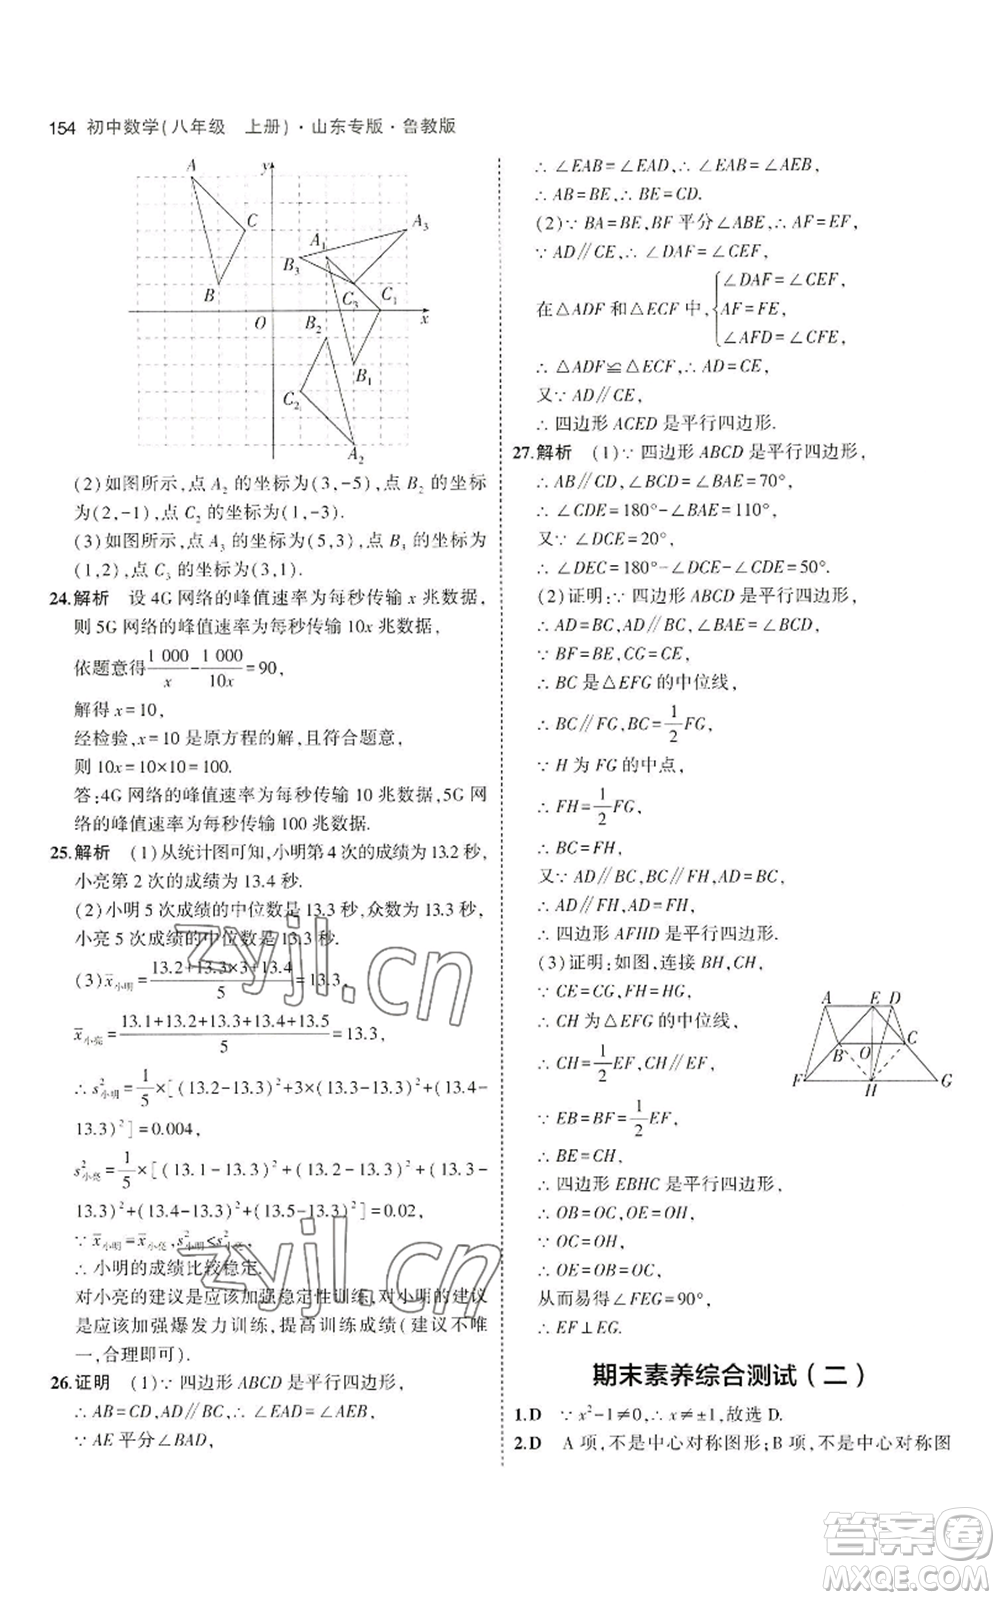 154 初中数学(八年级　上册)·山东专版·鲁教版
A y
C A₁ A₃
B₃
B C₃ C₁
O B₂ x
B₁
C₂
A₂
(2)如图所示,点 A₂ 的坐标为(3,-5),点 B₂ 的坐标
为(2,-1),点 C₂ 的坐标为(1,-3).
(3)如图所示,点 A₃ 的坐标为(5,3),点 B₃ 的坐标为
(1,2),点 C₃ 的坐标为(3,1).
24.解析　设 4G 网络的峰值速率为每秒传输 x 兆数据,
则 5G 网络的峰值速率为每秒传输 10x 兆数据,
依题意得1 000/x-1 000/10x=90,
解得 x=10,
经检验,x=10 是原方程的解,且符合题意,
则 10x=10×10=100.
答:4G 网络的峰值速率为每秒传输 10 兆数据,5G 网
络的峰值速率为每秒传输 100 兆数据.
25.解析　(1)从统计图可知,小明第 4 次的成绩为 13.2 秒,
小亮第 2 次的成绩为 13.4 秒.
(2)小明 5 次成绩的中位数是 13.3 秒,众数为 13.3 秒,
小亮 5 次成绩的中位数是 13.3 秒.
(3)x̄小明=(13.2+13.3×3+13.4)/5=13.3,
x̄小亮=(13.1+13.2+13.3+13.4+13.5)/5=13.3,
∴ s²小明=1/5×[(13.2-13.3)²+3×(13.3-13.3)²+(13.4-
13.3)²]=0.004,
s²小亮=1/5×[(13.1-13.3)²+(13.2-13.3)²+(13.3-
13.3)²+(13.4-13.3)²+(13.5-13.3)²]=0.02,
∵ x̄小明=x̄小亮,s²小明<s²小亮,
∴ 小明的成绩比较稳定.
对小亮的建议是应该加强稳定性训练,对小明的建议
是应该加强爆发力训练,提高训练成绩(建议不唯
一,合理即可).
26.证明　(1)∵ 四边形 ABCD 是平行四边形,
∴ AB=CD,AD∥BC,∴ ∠AEB=∠EAD,
∵ AE 平分∠BAD,
∴ ∠EAB=∠EAD,∴ ∠EAB=∠AEB,
∴ AB=BE,∴ BE=CD.
(2)∵ BA=BE,BF 平分∠ABE,∴ AF=EF,
∵ AD∥CE,∴ ∠DAF=∠CEF,
在△ADF 和△ECF 中,{∠DAF=∠CEF,
AF=FE,
∠AFD=∠CFE,
∴ △ADF≌△ECF,∴ AD=CE,
又∵ AD∥CE,
∴ 四边形 ACED 是平行四边形.
27.解析　(1)∵ 四边形 ABCD 是平行四边形,
∴ AB∥CD,∴ ∠BAE+∠CDE=180°,
∴ ∠CDE=180°-∠BAE=110°,
又∵ ∠DCE=20°,
∴ ∠DEC=180°-∠DCE-∠CDE=50°.
(2)证明:∵ 四边形 ABCD 是平行四边形,
∴ AD=BC,AD∥BC,∠BAE=∠BCD,
∵ BF=BE,CG=CE,
∴ BC 是△EFG 的中位线,
∴ BC∥FG,BC=1/2FG,
∵ H 为 FG 的中点,
∴ FH=1/2FG,
∴ BC=FH,
又∵ AD∥BC,AD=BC,BC∥FH,
∴ AD∥FH,AD=FH,
∴ 四边形 AFHD 是平行四边形.
(3)证明:如图,连接 BH,CH,
∵ CE=CG,FH=HG,
∴ CH 为△EFG 的中位线,
∴ CH=1/2EF,CH∥EF,
∵ EB=BF=1/2EF,
∴ BE=CH,
∴ 四边形 EBHC 是平行四边形,
∴ OB=OC,OE=OH,
∵ OC=OH,
∴ OE=OB=OC,
从而易得∠FEG=90°,
∴ EF⊥EG.
A E D
B O C
F H G
期末素养综合测试(二)
1.D　∵ x²-1≠0,∴ x≠±1,故选 D.
2.D　A 项,不是中心对称图形;B 项,不是中心对称图
zyjl.cn
zyjl.cn
答案圈
MXQE.COM